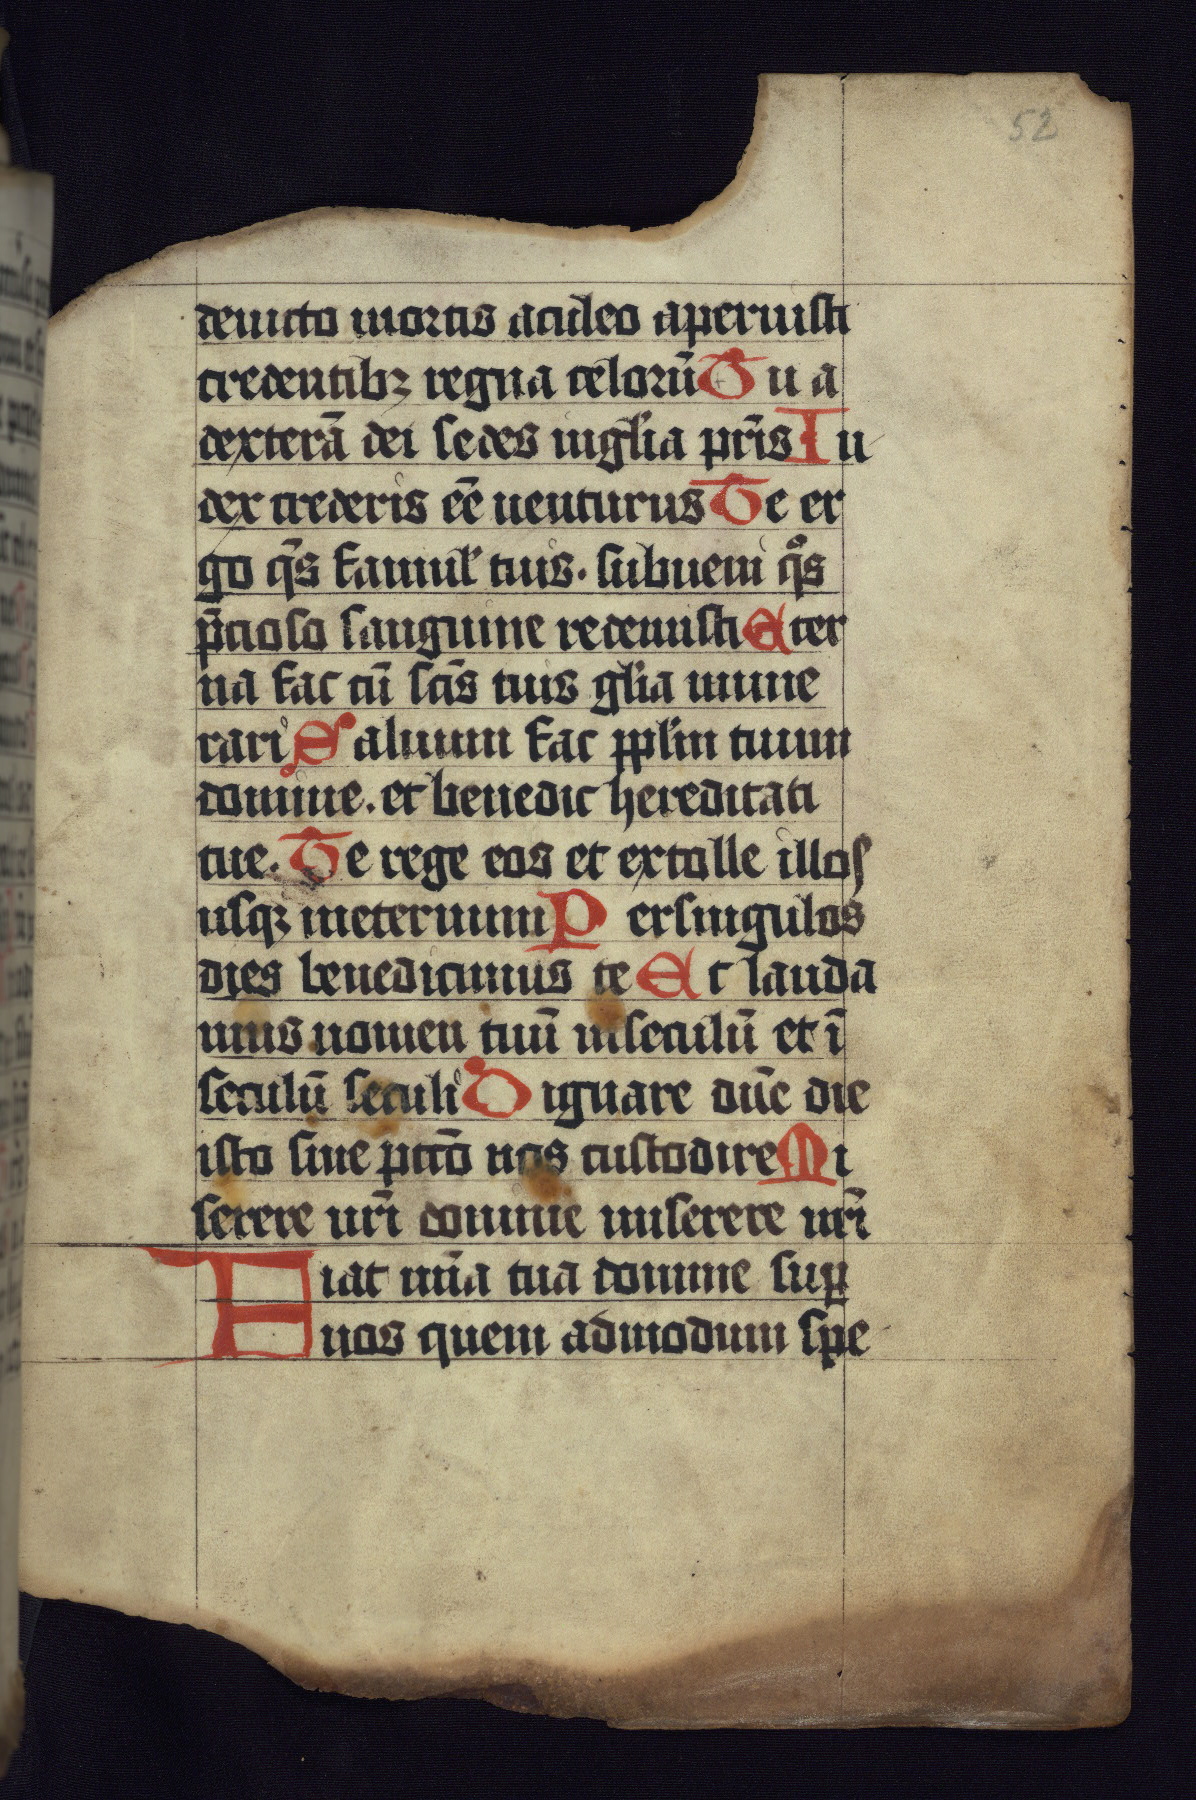 52
deuicto mortis aculeo aperuisti
credentibꝫ regna celorū Tu a
dexterā dei sedes inglia pr̄is Iu
dex crederis eē uenturus Te er
go q̄s famul' tuis. subueni qͦs
p̄cioso sanguine redemisti Eter
na fac cū sc̄is tuis gl'ia mune
rari Saluum fac ppl'm tuum
domine. et benedic hereditati
tue. Te rege eos et extolle illos
usqꝫ ineternum Persingulos
dies benedicimus te Et lauda
mus nomen tuū inseculū et ī
seculū seculi Dignare dn̄e die
isto sine pccō nos custodire Mi
serere nr̄i domine miserere nr̄i
Fiat mīa tua domine suꝑ
nos quem admodum spe